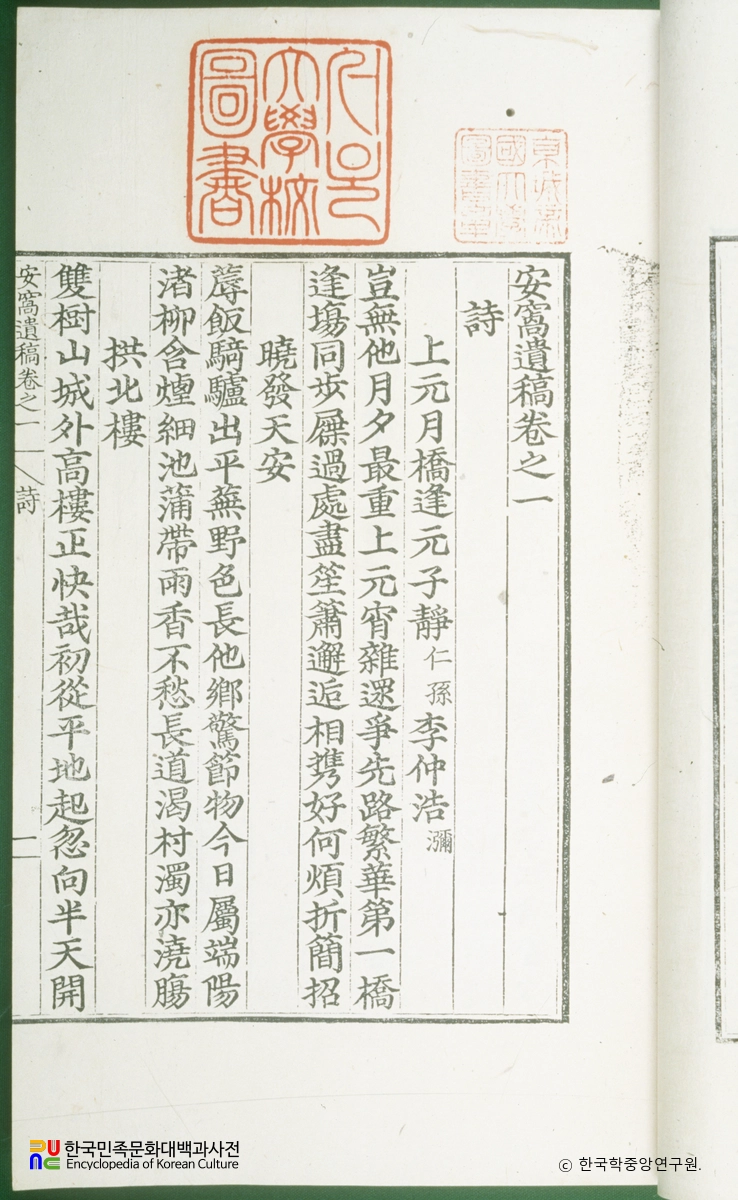 서울
大學校
圖書
京城帝
國大學
圖書章
安窩遺稿卷之一
詩
上元月橋逢元子靜 仁孫 李仲浩 瀰
豈無他月夕最重上元宵雜遝爭先路繁華第一橋
逢塲同步屧過處盡笙簫邂逅相携好何煩折簡招
曉發天安
蓐飯騎驢出平蕪野色長他鄉驚節物今日屬端陽
渚柳含煙細池蒲帶雨香不愁長道渴村濁亦澆膓
拱北樓
雙樹山城外高樓正快哉初從平地起忽向半天開
安窩遺稿卷之一 詩
한국민족문화대백과사전
Encyclopedia of Korean Culture
© 한국학중앙연구원.